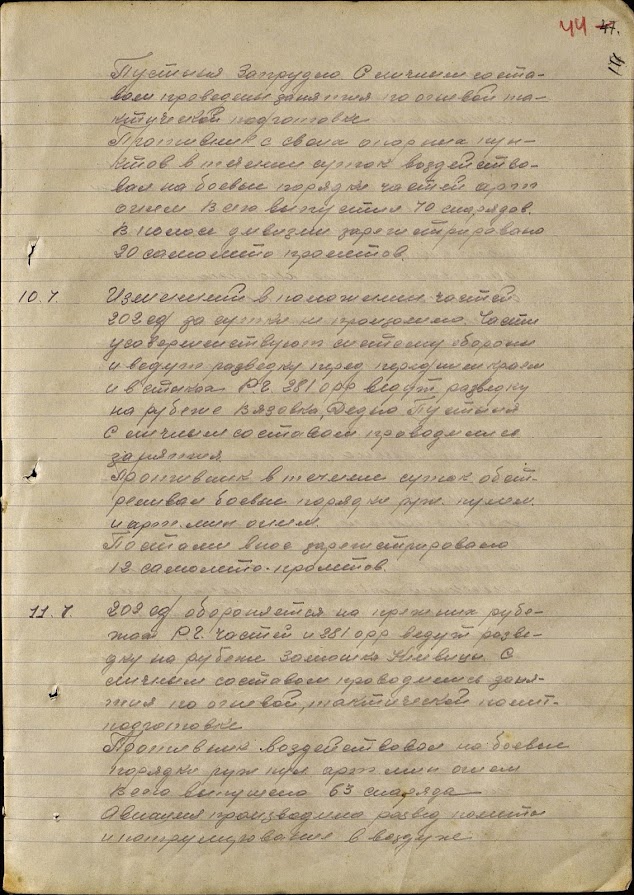 44 47.
17
Пустыня Запрудно. С личным соста-
вом проведены занятия по огневой та-
ктической подготовке
Противник с своих опорных пун-
ктов в течении суток воздейство-
вал на боевые порядки частей арт
огнем Всего выпустил 70 снарядов.
В полосе дивизии зарегистрировано
20 самолето пролетов.
10.7. Изменений в положении частей
202 сд за сутки не произошло. Части
усовершенствуют систему обороны
и ведут разведку перед передним краем
и в стыках РГ. 281 орр ведут разведку
на рубеже Вязовка, Пустыня
С личным составом проводились
занятия
Противник в течении суток обст-
реливал боевые порядки руж. пулем.
и арт. мин огнем.
Постами внос зарегистрировано
12 самолето-пролетов.
11.7. 202 сд обороняется на прежних рубе-
жах РГ. частей и 281 орр ведут разве-
дку на рубеже С
личным составом проводились заня-
тия по огневой, тактической полит-
подготовке
Противник воздействовал на боевые
порядки руж пул арт мин огнем
Всего выпущено 63 снаряда
Авиация производила развед полеты
и патрулирование в воздухе